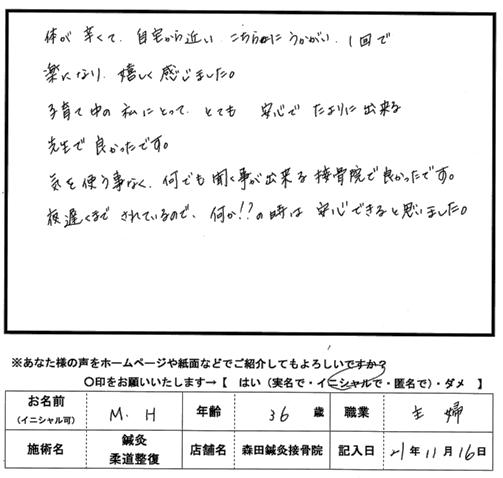 体が辛くて、自宅から近いこちらにうかがい、1回で
楽になり、嬉しく感じました。
子育て中の私にとって、とても 安心で たよりに出来る
先生で良かったです。
気を使う事なく、何でも聞く事が出来る接骨院で良かったです。
夜遅くまでされているので、何か!?の時は 安心できると思いました。
※あなた様の声をホームページや紙面などでご紹介してもよろしいですか?
〇印をお願いいたします→【 はい（実名で・イニシャルで・匿名で）・ダメ 】
お名前（イニシャル可） M.H 年齢 36歳 職業 主婦
施術名 鍼灸 柔道整復 店舗名 森田鍼灸接骨院 記入日 21年11月16日